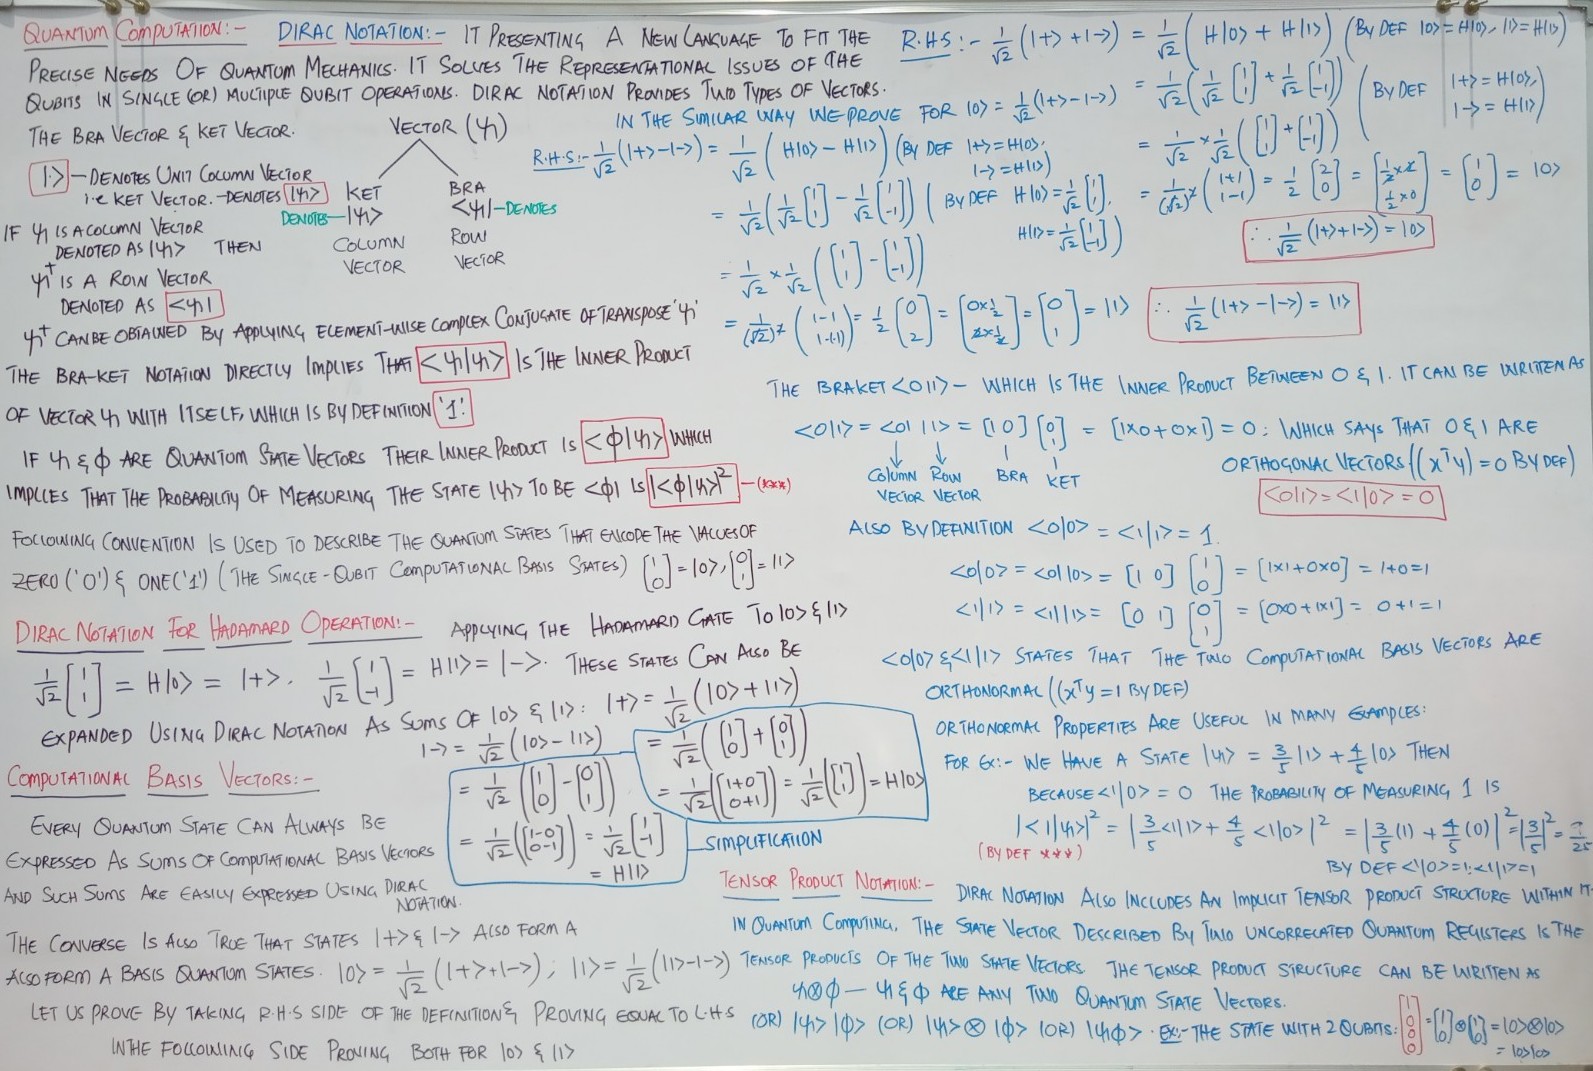 QUANTUM COMPUTATION:- DIRAC NOTATION:- IT PRESENTING A NEW LANGUAGE TO FIT THE
PRECISE NEEDS OF QUANTUM MECHANICS. IT SOLVES THE REPRESENTATIONAL ISSUES OF THE
QUBITS IN SINGLE (OR) MULTIPLE QUBIT OPERATIONS. DIRAC NOTATION PROVIDES TWO TYPES OF VECTORS.
THE BRA VECTOR & KET VECTOR.
VECTOR (ψ)
|> — DENOTES UNIT COLUMN VECTOR
i.e KET VECTOR. -DENOTES |ψ>
KET
DENOTES- |ψ>
COLUMN
VECTOR
BRA
<ψ| -DENOTES
ROW
VECTOR
IF ψ IS A COLUMN VECTOR
DENOTED AS |ψ> THEN
ψ† IS A ROW VECTOR
DENOTED AS <ψ|
ψ† CAN BE OBTAINED BY APPLYING ELEMENT-WISE COMPLEX CONJUGATE OF TRANSPOSE 'ψ'
THE BRA-KET NOTATION DIRECTLY IMPLIES THAT <ψ|ψ> IS THE INNER PRODUCT
OF VECTOR ψ WITH ITSELF, WHICH IS BY DEFINITION '1'.
IF ψ & ϕ ARE QUANTUM STATE VECTORS THEIR INNER PRODUCT IS <ϕ|ψ> WHICH
IMPLIES THAT THE PROBABILITY OF MEASURING THE STATE |ψ> TO BE <ϕ| IS |<ϕ|ψ>|² — (***)
FOLLOWING CONVENTION IS USED TO DESCRIBE THE QUANTUM STATES THAT ENCODE THE VALUES OF
ZERO ('0') & ONE ('1') (THE SINGLE-QUBIT COMPUTATIONAL BASIS STATES) [1 0] = |0>, [0 1] = |1>
DIRAC NOTATION FOR HADAMARD OPERATION:- APPLYING THE HADAMARD GATE TO |0> & |1>
1/√2 [1 1] = H|0> = |+>. 1/√2 [1 -1] = H|1> = |->. THESE STATES CAN ALSO BE
EXPANDED USING DIRAC NOTATION AS SUMS OF |0> & |1>: |+> = 1/√2 (|0> + |1>)
|-> = 1/√2 (|0> - |1>)
= 1/√2 ([1 0] - [0 1])
= 1/√2 ([1-0 0-1]) = 1/√2 [1 -1]
= H|1>
= 1/√2 ([1 0] + [0 1])
= 1/√2 ([1+0 0+1]) = 1/√2 ([1 1]) = H|0>
SIMPLIFICATION
COMPUTATIONAL BASIS VECTORS:-
EVERY QUANTUM STATE CAN ALWAYS BE
EXPRESSED AS SUMS OF COMPUTATIONAL BASIS VECTORS
AND SUCH SUMS ARE EASILY EXPRESSED USING DIRAC
NOTATION.
THE CONVERSE IS ALSO TRUE THAT STATES |+> & |-> ALSO FORM A
ALSO FORM A BASIS QUANTUM STATES. |0> = 1/√2 (|+> + |->); |1> = 1/√2 (|1> - |->)
LET US PROVE BY TAKING R.H.S SIDE OF THE DEFINITION & PROVING EQUAL TO L.H.S
IN THE FOLLOWING SIDE PROVING BOTH FOR |0> & |1>
R.H.S:- 1/√2 (|+> + |->) = 1/√2 (H|0> + H|1>) (BY DEF |0> = H|0>, |1> = H|1>)
= 1/√2 (1/√2 [1 1] + 1/√2 [1 -1]) (BY DEF |+> = H|0>, |-> = H|1>)
= 1/√2 × 1/√2 ([1 1] + [1 -1])
= 1/(√2)² (1+1 1-1) = 1/2 [2 0] = [1/2×2 1/2×0] = [1 0] = |0>
∴ 1/√2 (|+> + |->) = |0>
IN THE SIMILAR WAY WE PROVE FOR |0> = 1/√2 (|+> - |->)
R.H.S:- 1/√2 (|+> - |->) = 1/√2 (H|0> - H|1>) (BY DEF |+> = H|0>, |-> = H|1>)
= 1/√2 (1/√2 [1 1] - 1/√2 [1 -1]) (BY DEF H|0> = 1/√2 [1 1], H|1> = 1/√2 [1 -1])
= 1/√2 × 1/√2 ([1 1] - [1 -1])
= 1/(√2)² (1-1 1-(-1)) = 1/2 (0 2) = [0×1/2 2×1/2] = [0 1] = |1>
∴ 1/√2 (|+> - |->) = |1>
THE BRAKET <0|1> - WHICH IS THE INNER PRODUCT BETWEEN 0 & 1. IT CAN BE WRITTEN AS
<0|1> = <0| |1> = [1 0] [0 1] = [1×0 + 0×1] = 0: WHICH SAYS THAT 0 & 1 ARE
COLUMN VECTOR ROW VECTOR BRA KET
ORTHOGONAL VECTORS ((xᵀy) = 0 BY DEF)
<0|1> = <1|0> = 0
ALSO BY DEFINITION <0|0> = <1|1> = 1.
<0|0> = <0||0> = [1 0] [1 0] = [1×1 + 0×0] = 1+0=1
<1|1> = <1||1> = [0 1] [0 1] = [0×0 + 1×1] = 0+1=1
<0|0> & <1|1> STATES THAT THE TWO COMPUTATIONAL BASIS VECTORS ARE
ORTHONORMAL ((xᵀy = 1 BY DEF)
ORTHONORMAL PROPERTIES ARE USEFUL IN MANY EXAMPLES:
FOR EX:- WE HAVE A STATE |ψ> = 3/5 |1> + 4/5 |0> THEN
BECAUSE <1|0> = 0 THE PROBABILITY OF MEASURING 1 IS
|<1|ψ>|² = |3/5 <1|1> + 4/5 <1|0>|² = |3/5 (1) + 4/5 (0)|² = |3/5|² = 9/25
(BY DEF ***)
BY DEF <1|0> = 1; <1|1> = 1
TENSOR PRODUCT NOTATION:- DIRAC NOTATION ALSO INCLUDES AN IMPLICIT TENSOR PRODUCT STRUCTURE WITHIN IT.
IN QUANTUM COMPUTING, THE STATE VECTOR DESCRIBED BY TWO UNCORRELATED QUANTUM REGISTERS IS THE
TENSOR PRODUCTS OF THE TWO STATE VECTORS. THE TENSOR PRODUCT STRUCTURE CAN BE WRITTEN AS
ψ⊗ϕ — ψ & ϕ ARE ANY TWO QUANTUM STATE VECTORS.
(OR) |ψ> |ϕ> (OR) |ψ> ⊗ |ϕ> (OR) |ψϕ>. EX:- THE STATE WITH 2 QUBITS: [1 0 0 0] = [1 0] ⊗ [1 0] = |0>⊗|0>
= |0>|0>